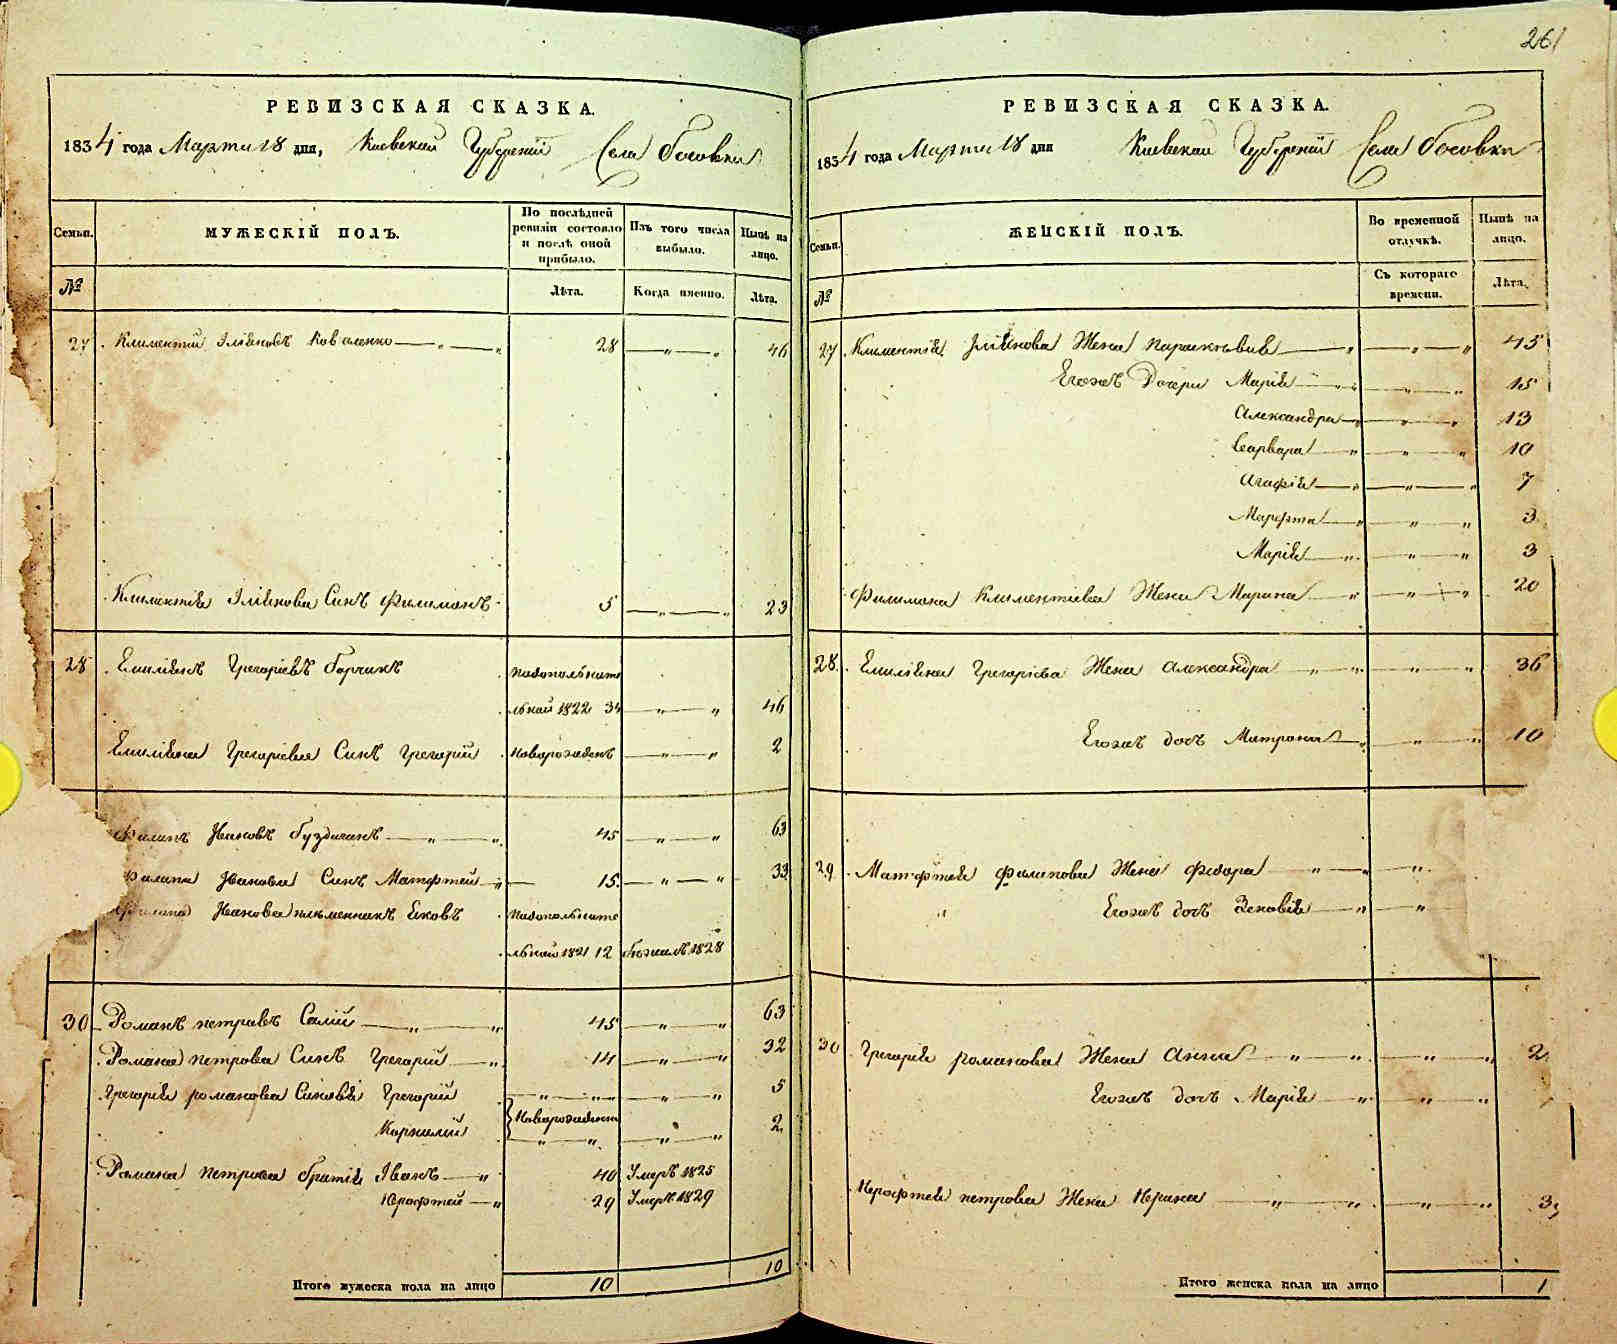 261
РЕВИЗСКАЯ СКАЗКА.
1834 года Марта 18 дня, Киевской Губерний Села Босовки
Семьи. МУЖЕСКІЙ ПОЛЪ. По послѣдней ревизіи состояло и послѣ оной прибыло. Изъ того числа выбыло. Нынѣ на лицо.
№ Лѣта. Когда именно. Лѣта.
27 Климентій Коваленко 28 46
Сынъ Филимонъ 5 23
28 Емиліянъ Грегоріевъ
льной 1822 34 46
Емиліяна Грегоріева Синъ Грегорій новорожденъ 2
Ивановъ 45 63
Иванова Синъ Матфтей 15 33
Иванова племенникъ Яковъ
льной 1821 12 1828
30 Романъ петровъ Салій 45 63
Романа петрова Синъ Грегорій 14 32
Грегорія романова Синовя Грегорій 5
Корнилій новорожденн 2
Романа петрова братія Іванъ 40 Умеръ 1825
29 Умеръ 1829
Итого мужеска пола на лицо 10 10
РЕВИЗСКАЯ СКАЗКА.
1834 года Марта 18 дня Киевской Губерній Села Босовки
Семьи. ЖЕНСКІЙ ПОЛЪ. Во временной отлучкѣ. Нынѣ на лицо.
№ Съ котораго времени. Лѣта.
27 Климентія Жена 45
Егожъ Дочери Марія 15
Александра 13
Варвара 10
Агафія 7
Марфта 3
Марія 3
Филимона Климентіева Жена Марина 20
28 Емиліяна Грегоріева Жена Александра 36
Егожъ дочь Матрона 10
29 Матфтея Филипова Жена Федора
Егожъ дочь Зеновія
30 Грегорія романова Жена Анна 2
Егожъ дочь Марія
петрова Жена 3
Итого женска пола на лицо 1